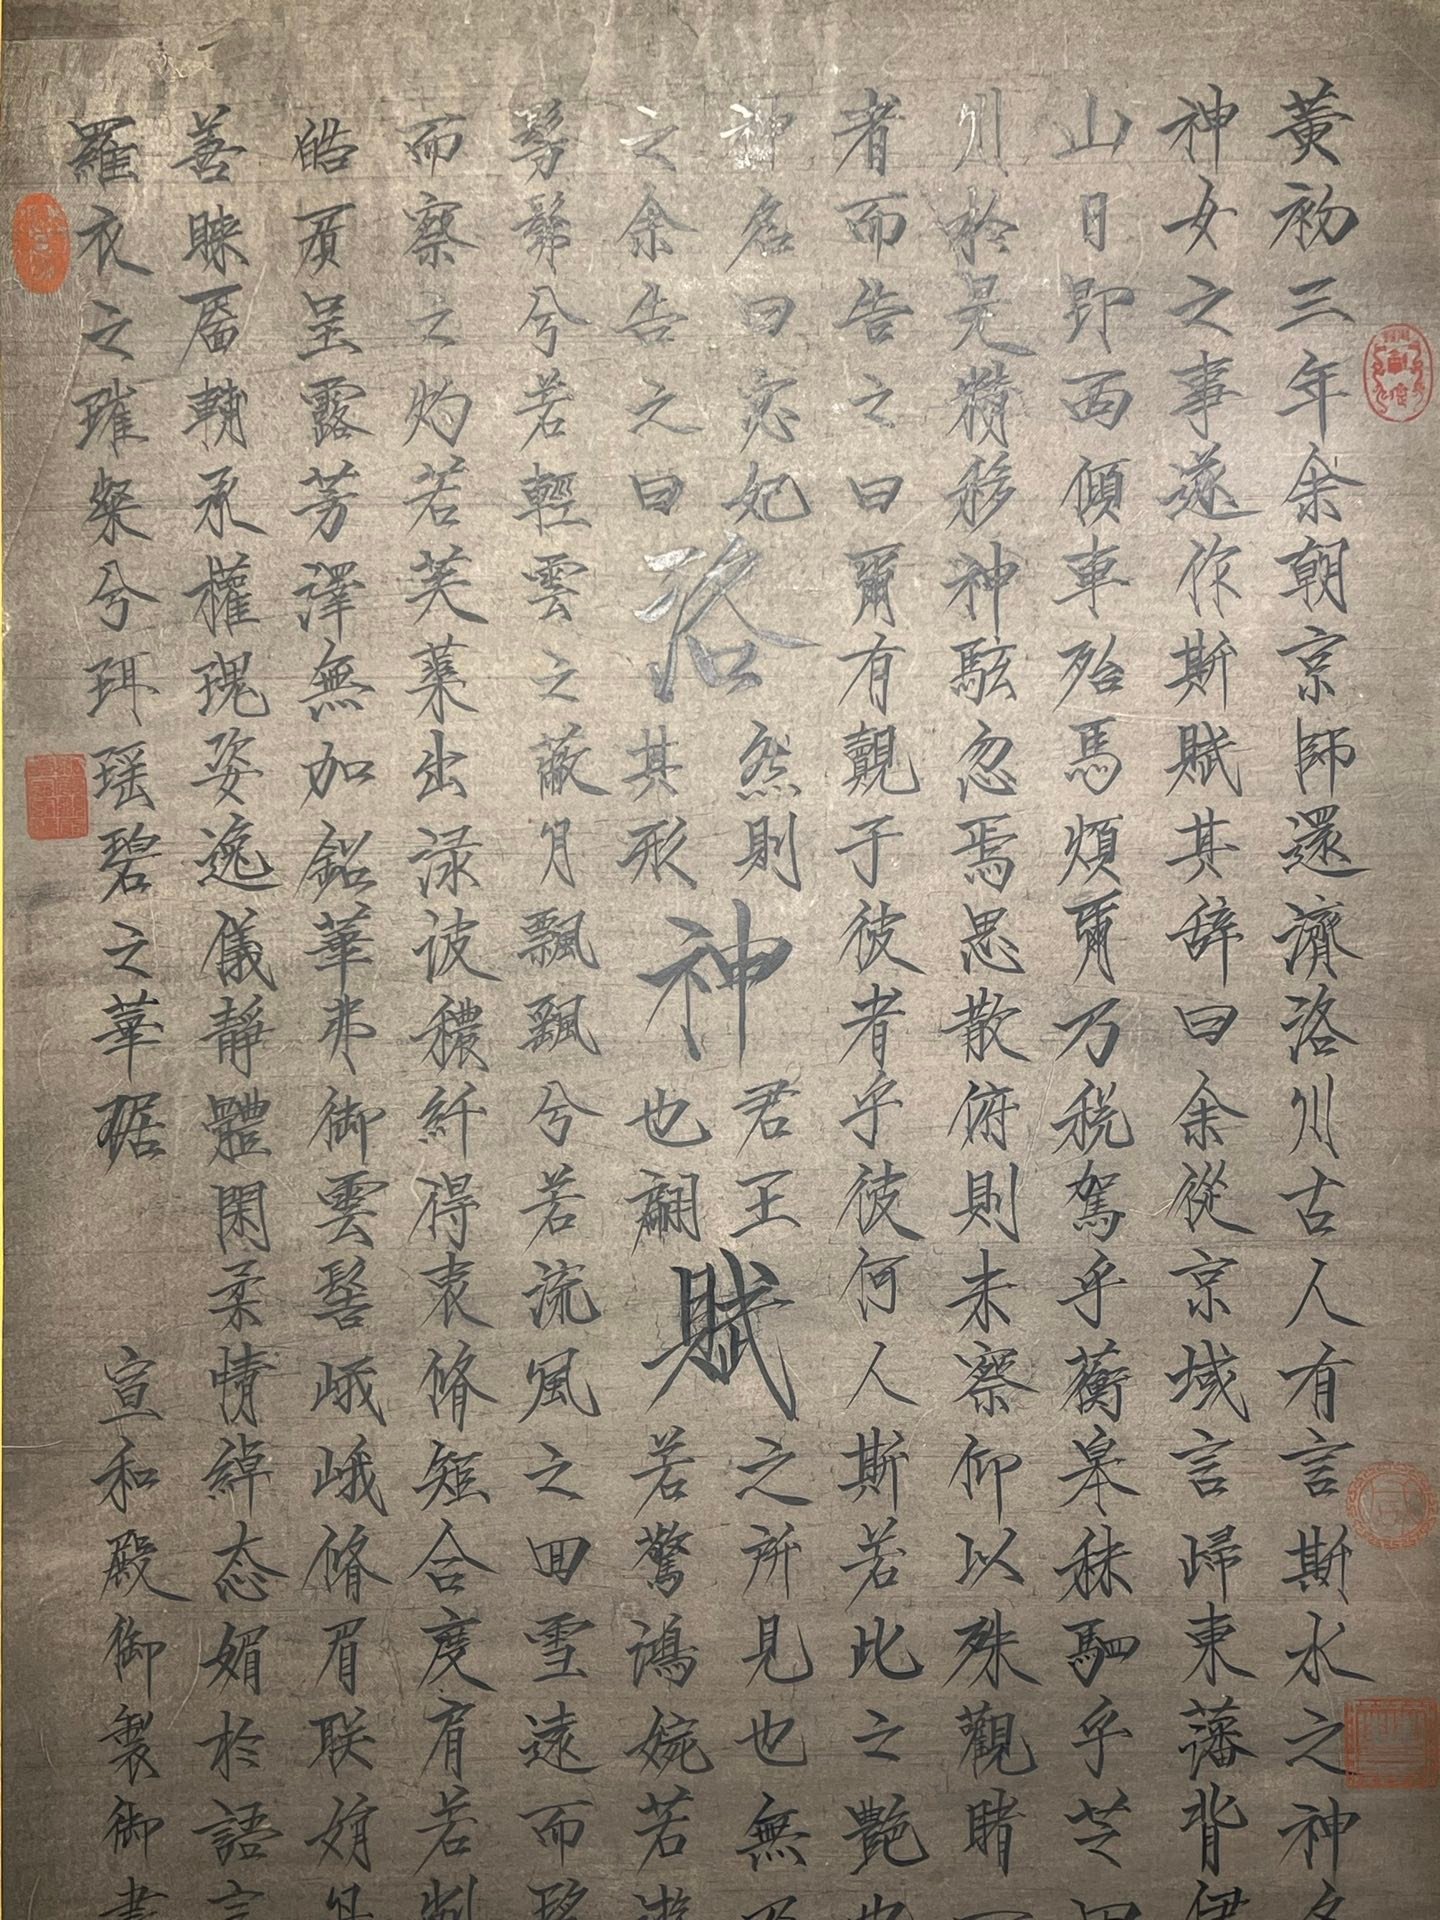 黃初三年余朝京師還濟洛川古人有言斯水之神名
神女之事遂作斯賦其辞曰余從京域言歸東藩背伊
山日即西傾車殆馬煩爾乃稅駕乎蘅皋秣駟乎芝田
川於是精移神駭忽焉思散俯則未察仰以殊觀睹一
者而告之曰爾有覿于彼者乎彼何人斯若此之艷也
神名曰宓妃然則君王之所見也無乃
洛神賦
之余告之曰其形也翩若驚鴻婉若遊
髣髴兮若輕雲之蔽月飄飄兮若流風之回雪遠而
而察之灼若芙蕖出渌波穠纤得衷脩短合度肩若削
皓質呈露芳澤無加鉛華弗御雲髻峨峨脩眉联娟丹
善睞靨輔承權瑰姿逸儀靜體閑柔情綽态媚於語言
羅衣之璀粲兮珥瑤碧之華琚
宣和殿御製御書